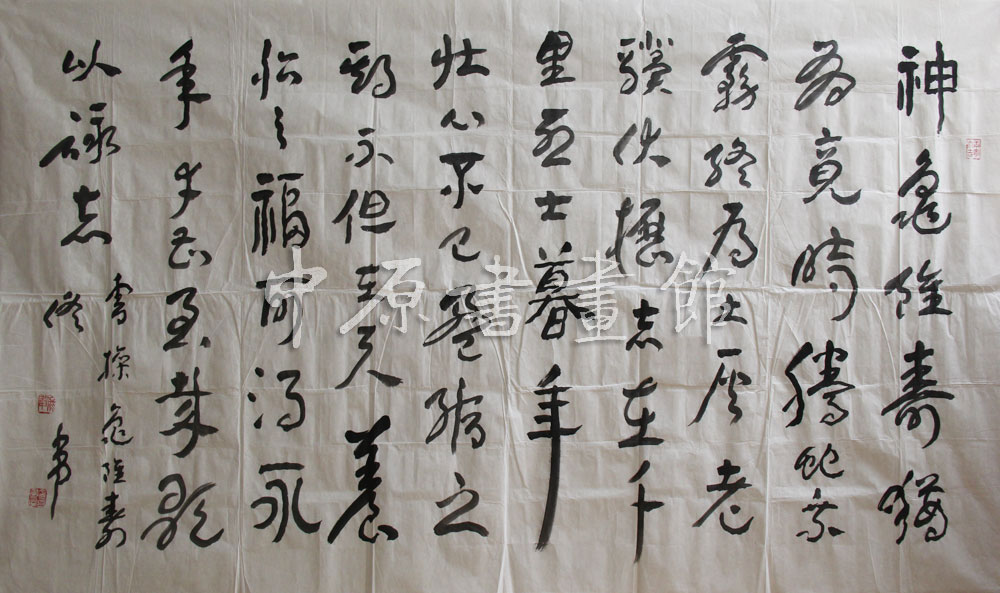 神龜雖壽猶
有竟時騰蛇乘
霧終為土灰老
驥伏櫪志在千
里烈士暮年
壯心不已盈縮之
期不但在天養
怡之福可得永
年幸甚至哉歌
以詠志
曹操龜雖壽
中原書畫館